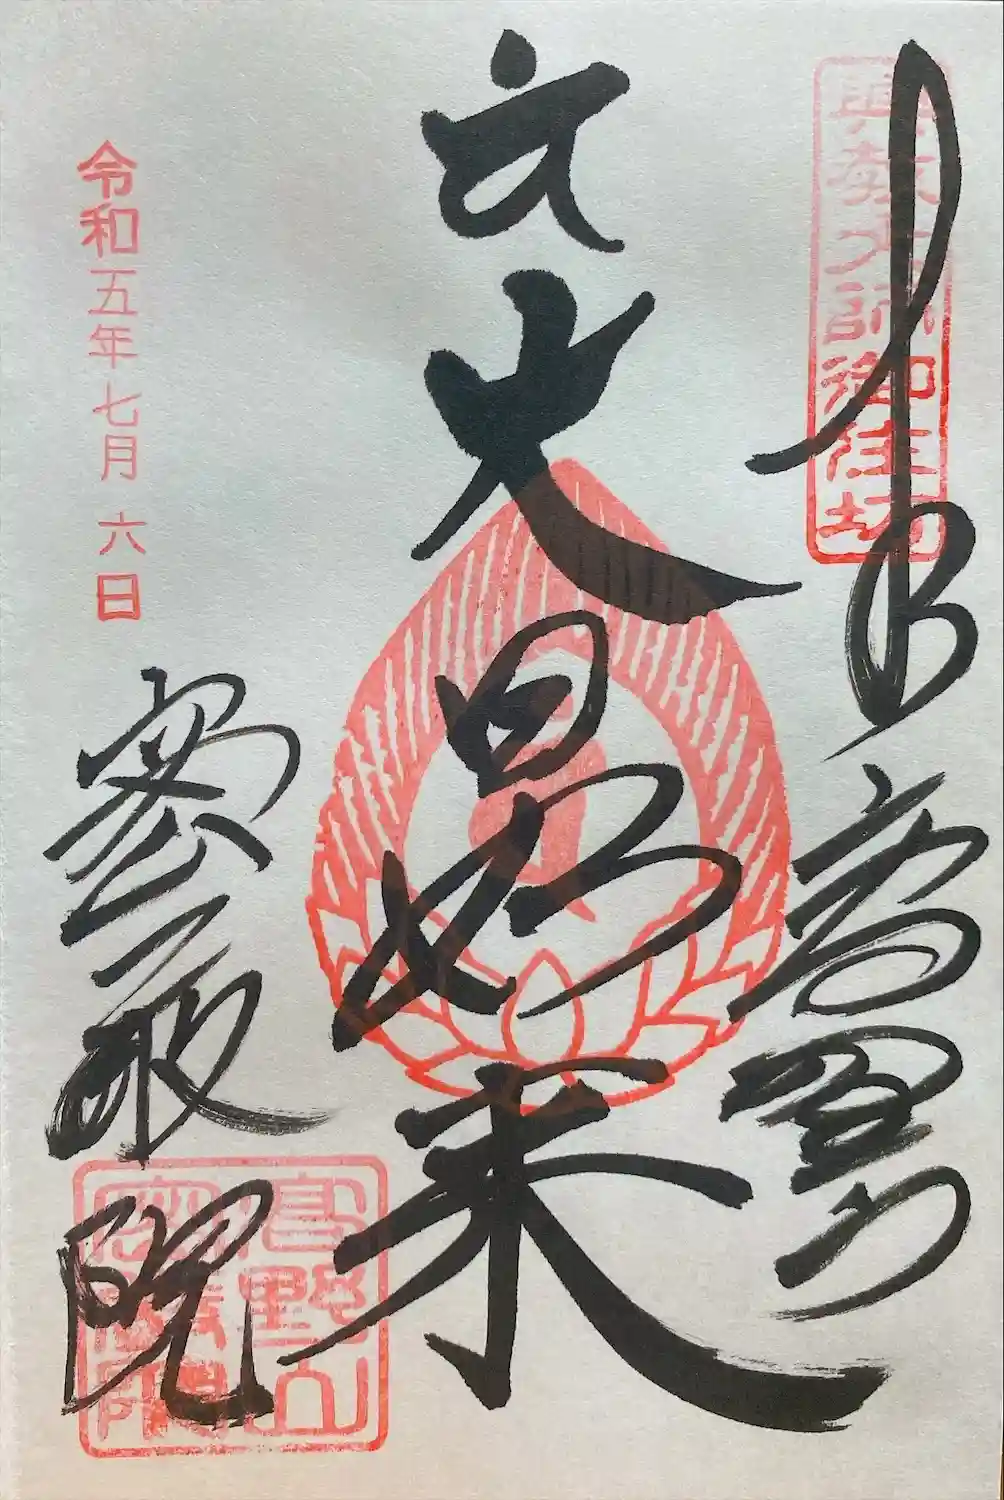 興教大師御住坊
奉拝 高野山
大日如来
令和五年七月六日
密厳院
高野山
密厳院